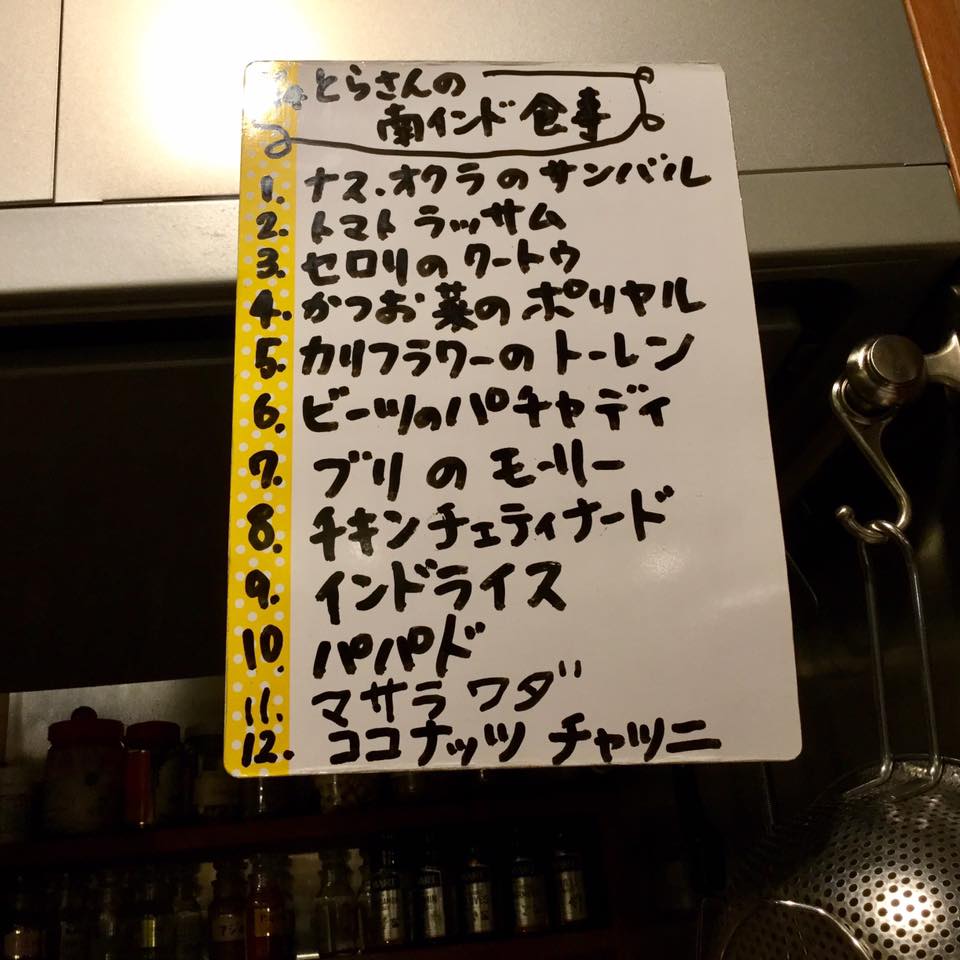 とらさんの
南インド食事
1. ナス・オクラのサンバル
2. トマト ラッサム
3. セロリのクートゥ
4. かつお菜のポリヤル
5. カリフラワーのトーレン
6. ビーツのパチャディ
7. ブリのモーリー
8. チキンチェティナード
9. インドライス
10. パパド
11. マサラワダ
12. ココナッツ チャツニ